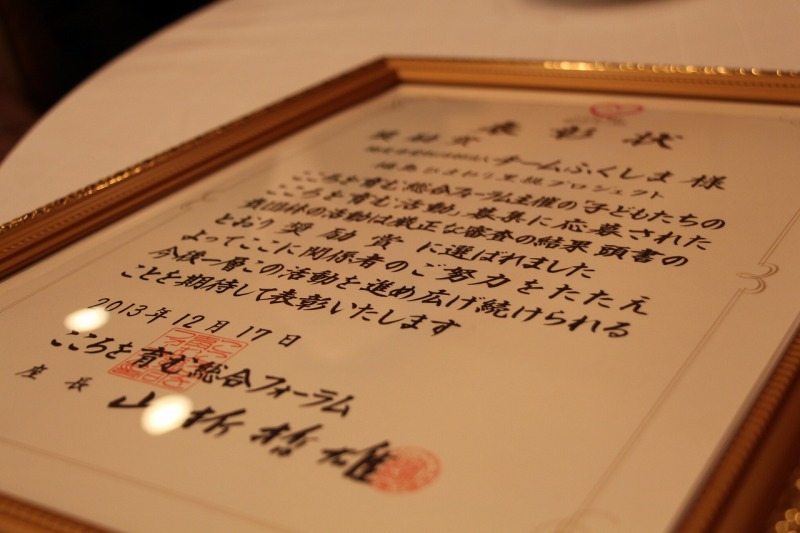 表彰状
奨励賞
特定非営利活動法人 チームふくしま 様
福島ひまわり里親プロジェクト
こころを育む総合フォーラム主催の「子どもたちの
こころを育む活動」募集に応募された
貴団体の活動は厳正な審査の結果 頭書の
とおり 奨励賞 に選ばれました
よってここに関係者のご努力をたたえ
今後一層この活動を進め広げ続けられる
ことを期待して表彰いたします
2013年 12月 17日
こころを育む総合フォーラム
座長 山折哲雄